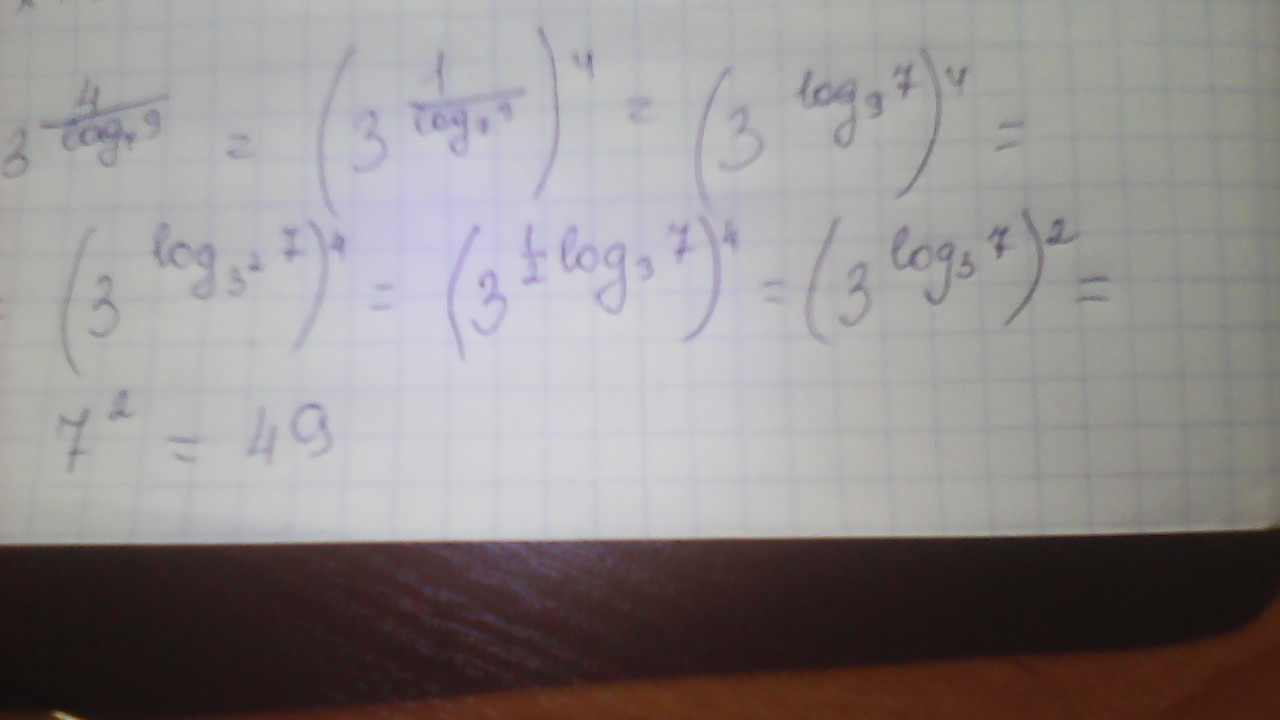 3^(4/log₇9) = (3^(1/log₇9))^4 = (3^(log₉7))^4 =
= (3^(log_(3²)7))^4 = (3^(1/2 log₃7))^4 = (3^(log₃7))^2 =
7² = 49